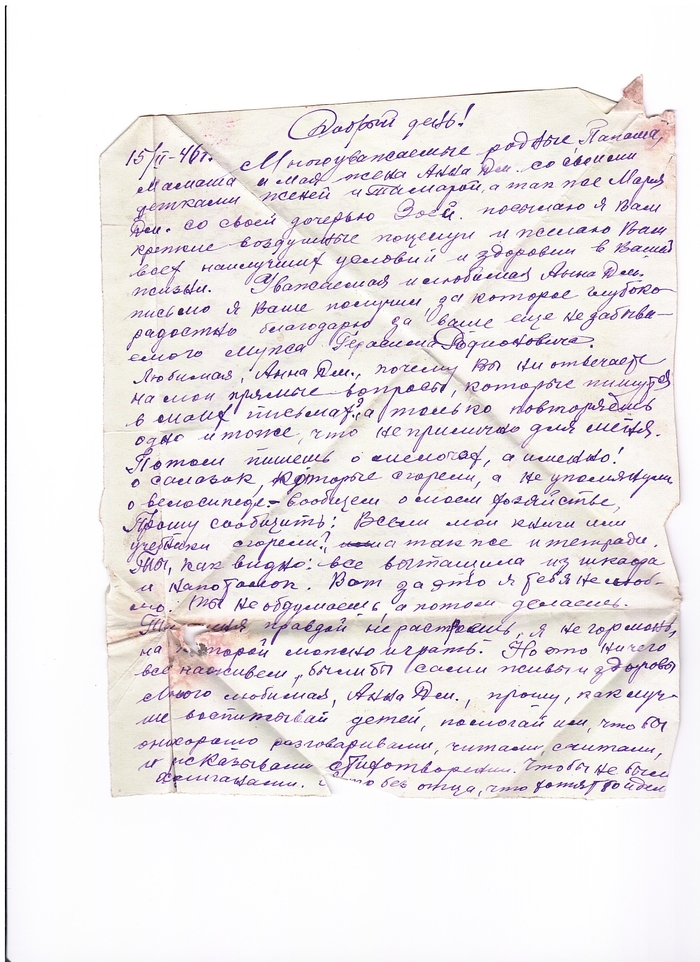 Добрый день!
15/II-46г. Многоуважаемые родные Папаша,
Мамаша и моя жена Анна Дм. со своими
детками Женей и Тамарой, а так же Мария
Дм. со своей дочерью Зоей. посылаю я Вам
крепкие воздушные поцелуи и желаю Вам
всех наилучших условий и здоровии в Вашей
жизни. Уважаемая и любимая Анна Дм.
письмо я Ваше получил за которое глубоко
радостно благодарю за ваше еще не забыва-
емого мужа Герасима Родионовича.
Любимая, Анна Дм., почему Вы ни отвечаете
на мои прямые вопросы, которые пишутся
в моих письмах?, а только повторяешь
одно и тоже, что неприлично для меня.
Потом пишешь о мелочах, а именно!
о салазок, которые сгорели, а не упомянули
о велосипеде - вообщем о моем хозяйстве,
Прошу сообщить: Всели мои книги или
учебники сгорели?, а так же и тетради.
Ты, как видно: все вытащила из шкафа
и напотолок. Вот за это я тебя не люб-
лю. Ты не обдумаешь, а потом делаешь.
правдой не растроешь, я не гормонь,
на которой можно играть. Но это ничего
все наживем, былибы сами живы и здоровы
Много любимая, Анна Дм., прошу, как луч-
ше воспитывай детей, помогай им, что бы
они хорошо разговаривали, читали, считали,
и рсказывали стихотворении. Чтобы не были
хулиганами. без отца, что хотят то и дел